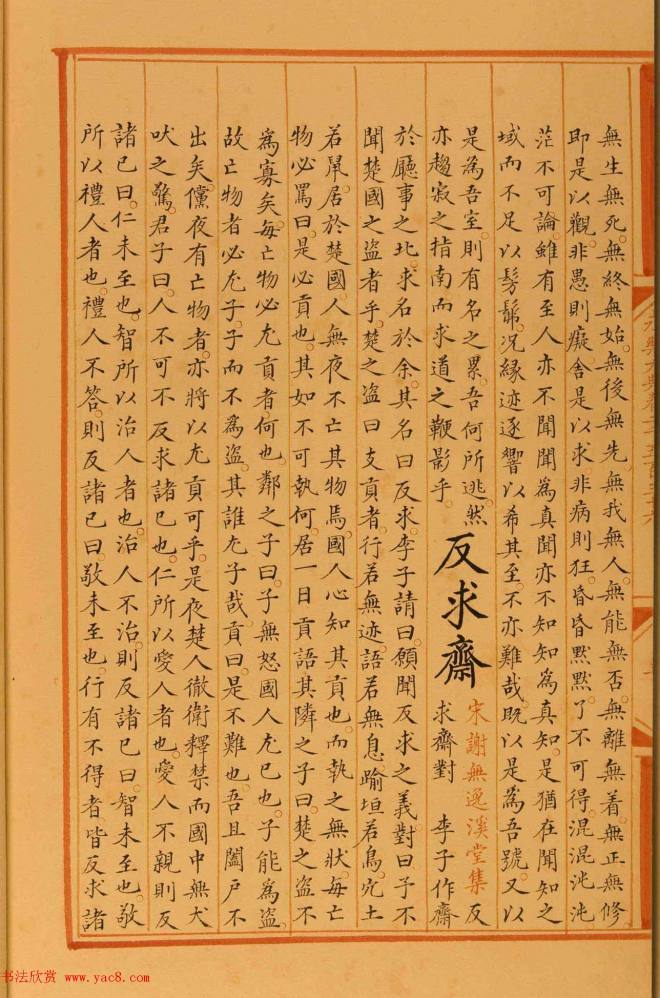 無生無死。無終無始。無後無先。無我無人。無能無否。無離無着。無正無修
即是以觀。非愚則癡。舍是以求。非病則狂。昏昏黙黙。了不可得。混混沌沌
茫不可論。雖有至人。亦不聞聞為真聞。亦不知知為真知。是猶在聞知之
域而不足以髣髴。况緣迹逐響。以希其至。不亦難哉。既以是為吾號。又以
是為吾室。則有名之累。吾何所逃。然
亦趨寂之指南而求道之鞭影乎。
反求齋
宋謝無逸溪堂集反
求齋對 李子作齋
於廳事之北。求名於余。其名曰反求。李子請曰。願聞反求之義。對曰。子不
聞楚國之盜者乎。楚之盜曰支貢者。行若無迹。語若無息。踰垣若鳥。穴土
若鼠。居於楚國。人無夜不亡其物焉。國人心知其貢也。而執之無狀。每亡
物必罵曰。是必貢也。其如不可執何。居一日。貢語其隣之子曰。楚之盜不
為寡矣。每亡物必尤貢者。何也。鄰之子曰。子無怒國人尤已也。子能為盜。
故亡物者必尤子。子而不為盜。其誰尤子哉。貢曰。是不難也。吾且闔户不
出矣。儻夜有亡物者。亦將以尤貢可乎。是夜楚人徹衛釋禁。而國中無犬
吠之驚。君子曰。人不可不反求諸已也。仁所以愛人者也。愛人不親。則反
諸已曰。仁未至也。智所以治人者也。治人不治。則反諸已曰。智未至也。敬
所以禮人者也。禮人不答。則反諸已曰。敬未至也。行有不得者。皆反求諸
书法欣赏 www.yac8.com